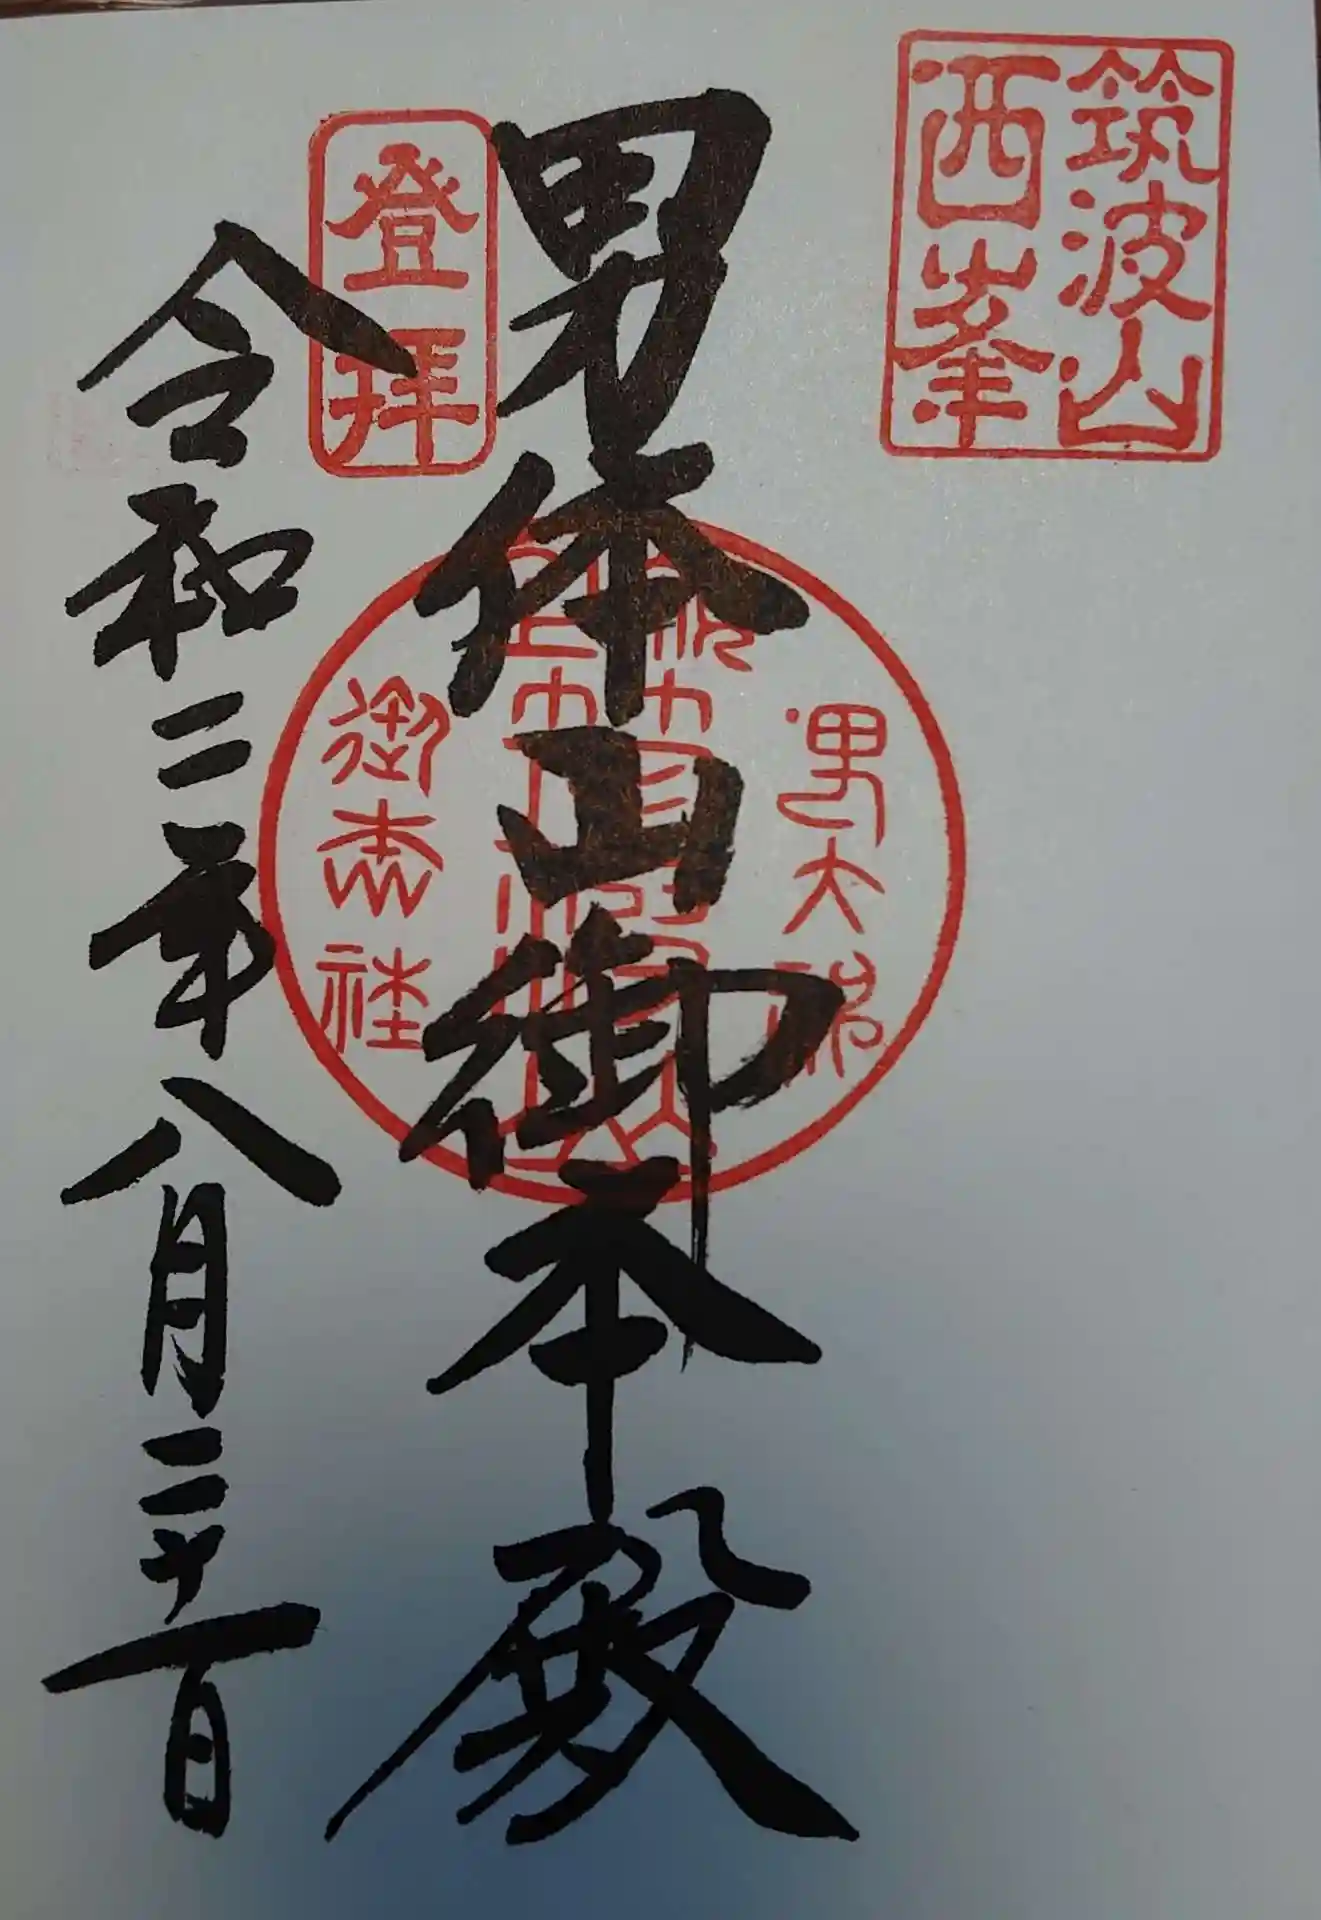 筑波山
西峯
男体山御本殿
登拝
令和二年八月二十一日
男大神
御本社